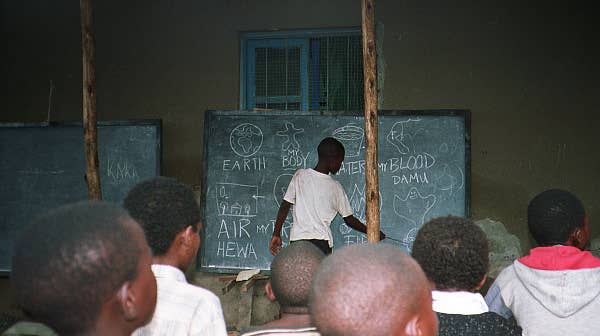 KAKA
EARTH
MY
BODY
WATER
MY
BLOOD
DAMU
AIR
MY
HEWA